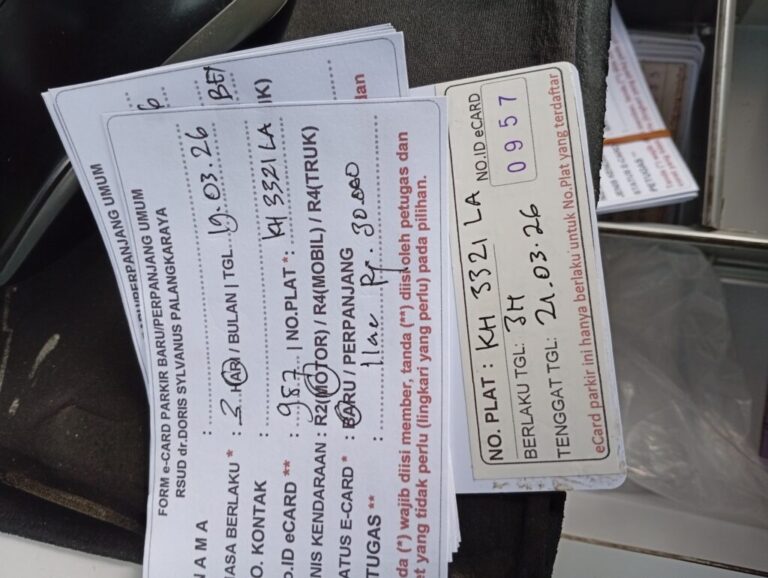 FORM e-CARD PARKIR BARU/PERPANJANG UMUM
RSUD dr.DORIS SYLVANUS PALANGKARAYA
NAMA :
ASA BERLAKU * : 3 HARI / BULAN | TGL. 19.03.26
O. KONTAK :
O.ID eCARD ** : 987 | NO.PLAT * : KH 3321 LA
NIS KENDARAAN : R2(MOTOR) / R4(MOBIL) / R4(TRUK)
ATUS E-CARD * : BARU / PERPANJANG
TUGAS ** : Rp. 30.000
da (*) wajib diisi member, tanda (**) diisi oleh petugas dan
et yang tidak perlu (lingkari yang perlu) pada pilihan.
/PERPANJANG UMUM
NO. PLAT : KH 3321 LA
BERLAKU TGL: 3H
TENGGAT TGL: 21.03.26
NO.ID eCARD
0957
eCard parkir ini hanya berlaku untuk No.Plat yang terdaftar